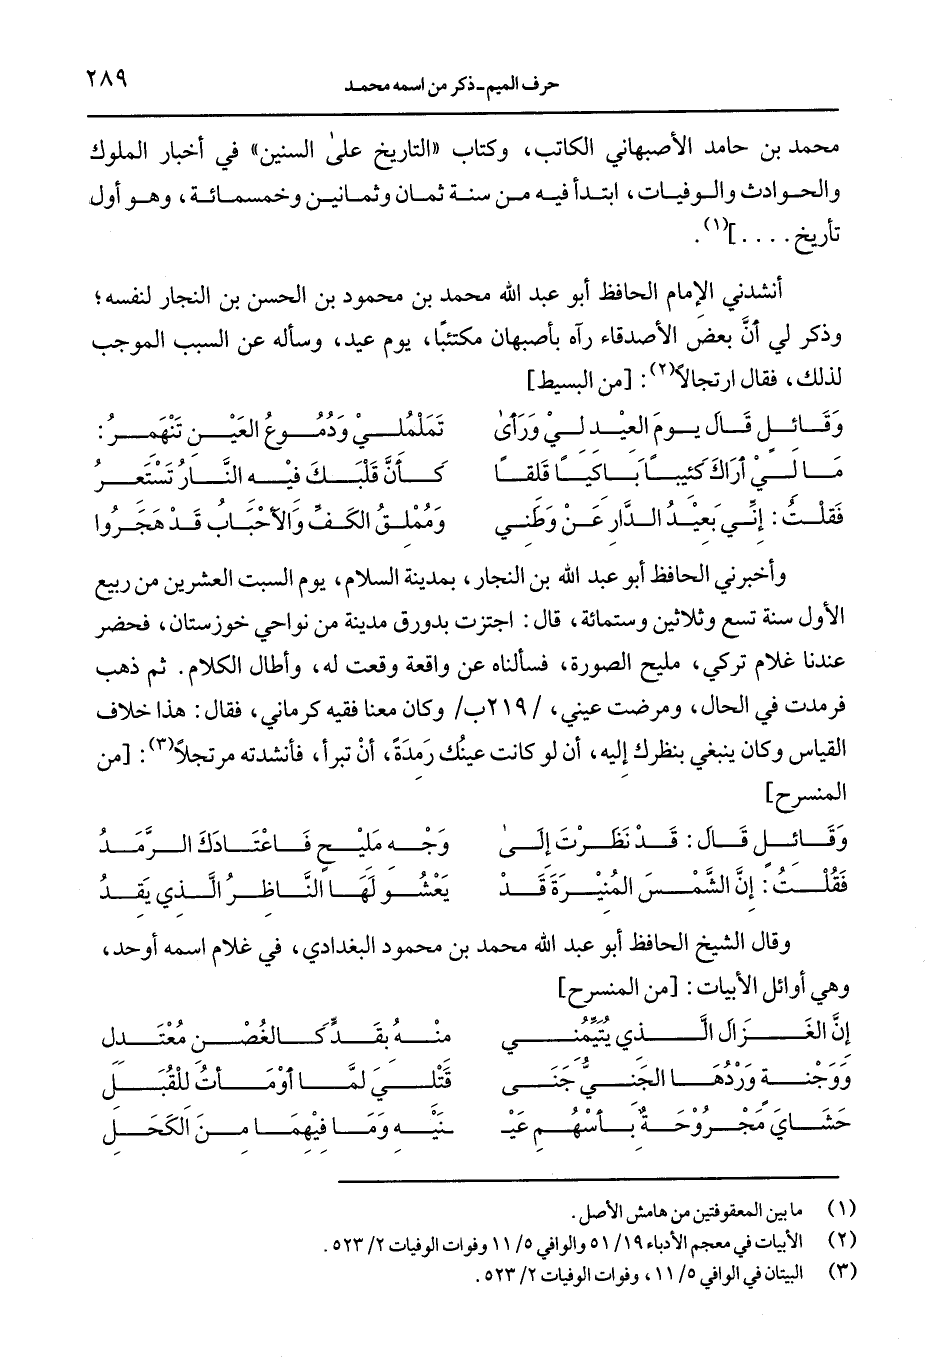 حرف الميم ـ ذكر من اسمه محمد ٢٨٩
محمد بن حامد الأصبهاني الكاتب، وكتاب «التاريخ على السنين» في أخبار الملوك
والحوادث والوفيات، ابتدأ فيه من سنة ثمان وثمانين وخمسمائة، وهو أول
تأريخ....](١).
أنشدني الإمام الحافظ أبو عبد الله محمد بن محمود بن الحسن بن النجار لنفسه؛
وذكر لي أنَّ بعض الأصدقاء رآه بأصبهان مكتئبًا، يوم عيد، وسأله عن السبب الموجب
لذلك، فقال ارتجالاً(٢): [من البسيط]
وَقَائِلٍ قَالَ يومَ العِيْدِ لِيْ وَرَأَىٰ تَمَلْمُلِيْ وَدُمُوعُ العَيْنِ تَنْهَمِرُ:
مَا لِيْ أَرَاكَ كَئِيبًا بَاكيًا قَلِقًا كَأَنَّ قَلْبَكَ فيْهِ النَّارُ تَسْتَعِرُ
فَقلْتُ: إنِّي بَعِيْدُ الدَّارِ عَنْ وَطَنِي وَمُمْلِقُ الكَفِّ وَالأحْبَابُ قَدْ هَجَرُوا
وأخبرني الحافظ أبو عبد الله بن النجار، بمدينة السلام، يوم السبت العشرين من ربيع
الأول سنة تسع وثلاثين وستمائة، قال: اجتزت بدورق مدينة من نواحي خوزستان، فحضر
عندنا غلام تركي، مليح الصورة، فسألناه عن واقعة وقعت له، وأطال الكلام. ثم ذهب
فرمدت في الحال، ومرضت عيني، /٢١٩ب/ وكان معنا فقيه كرماني، فقال: هذا خلاف
القياس وكان ينبغي بنظرك إليه، أن لو كانت عينُك رَمِدَةً، أنْ تبرأ، فأنشدته مرتجلاً(٣): [من
المنسرح]
وَقَائِلٍ قَالَ: قَدْ نَظَرْتَ إِلَىٰ وَجْهٍ مَلِيْحٍ فَاعْتَادَكَ الرَّمَدُ
فَقُلْتُ: إنَّ الشَّمْسَ المُنِيْرَةَ قَدْ يَعْشُو لَهَا النَّاظِرُ الَّذي يَقِدُ
وقال الشيخ الحافظ أبو عبد الله محمد بن محمود البغدادي، في غلام اسمه أوحد،
وهي أوائل الأبيات: [من المنسرح]
إنَّ الغَزَالَ الَّذي يُتَيِّمُنِي مِنْهُ بِقَدٍّ كَالغُصْنِ مُعْتَدِلِ
وَوَجْنَةٍ وَرْدُهَا الجَنِيُّ جَنَى قَتْلِيَ لَمَّا أَوْمَأْتُ لِلْقُبَلِ
حَشَايَ مَجْرُوحَةٌ بِأَسْهُمِ عَيْـ ـنَيْهِ وَمَا فِيْهِمَا مِنَ الكَحَلِ
(١) ما بين المعقوفتين من هامش الأصل.
(٢) الأبيات في معجم الأدباء ١٩/ ٥١ والوافي ٥/ ١١ وفوات الوفيات ٢/ ٥٢٣.
(٣) البيتان في الوافي ٥/ ١١، وفوات الوفيات ٢/ ٥٢٣.